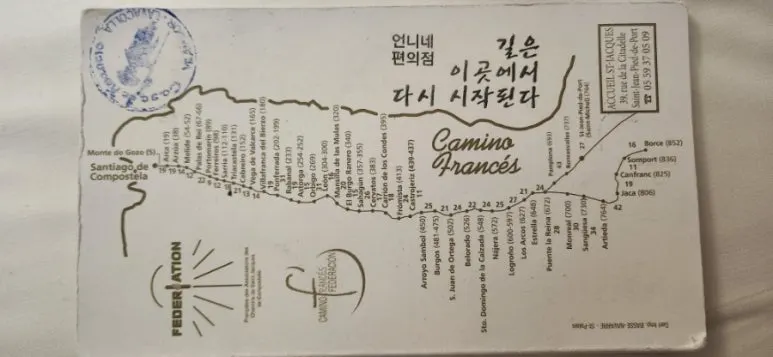 언니네
편의점
길은
이곳에서
다시 시작된다
ACCUEIL ST-JACQUES
39, rue de la Citadelle
Saint-Jean-Pied-de-Port
☎ 05 59 37 05 09
Camino
Francés
Monte do Gozo (5)
Santiago de
Compostela
Arca (19)
Arzúa (38)
Melide (54-52)
Palas de Rei (67-66)
Portomarín (89)
Ferreiros (98)
Sarria (112-110)
Triacastela (131)
Cebreiro (152)
Vega de Valcarce (165)
Villafranca del Bierzo (180)
Ponferrada (202-199)
Rabanal (233)
Astorga (254-252)
Órbigo (269)
León (304-300)
Mansilla de las Mulas (320)
El Burgo Ranero (340)
Sahagún (357-355)
Carrión de los Condes (395)
Frómista (413)
Castrojeriz (439-437)
Arroyo Sambol (450)
Burgos (481-475)
S. Juan de Ortega (502)
Belorado (526)
Sto. Domingo de la Calzada (548)
Nájera (572)
Logroño (600-597)
Los Arcos (627)
Estella (648)
Puente la Reina (672)
Pamplona (693)
Roncesvalles (737)
St Jean-Pied-de-Port
(Saint-Michel) (764)
Monreal (700)
Sangüesa (730)
Artieda (764)
Borce (852)
Somport (836)
Canfranc (825)
Jaca (806)
25 21 24 22 24 27 21 24
28
30
34
42
43
27
16
11
19
FEDERATION
Française des Associations des
Chemins de Saint-Jacques
de Compostelle
CAMINO FRANCÉS
FEDERACIÓN